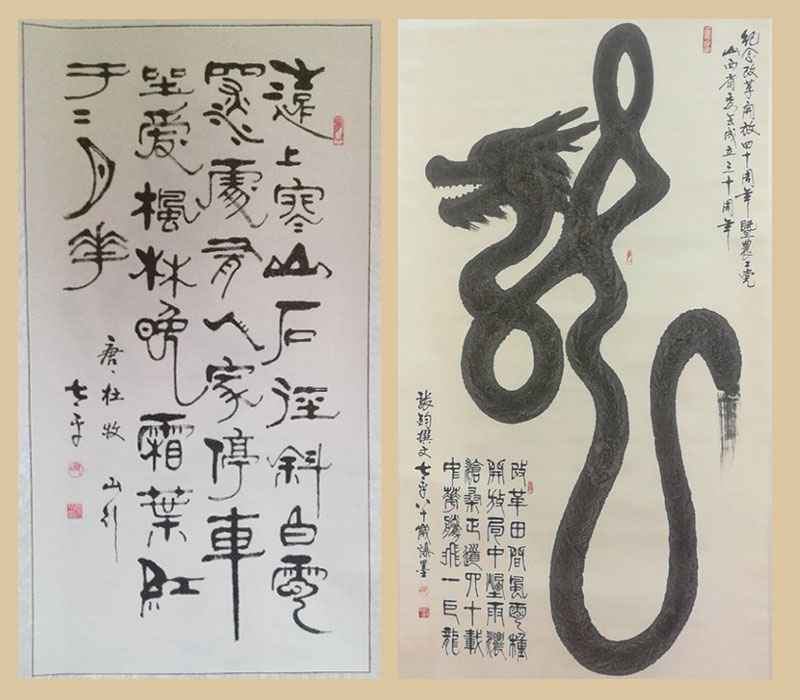 遠上寒山石徑斜白雲
深處有人家停車
坐愛楓林晚霜葉紅
于二月花
唐、杜牧 山行
紀念改革開放四十周年暨農工党
山西省委会成立三十周年
改革田間風雲種
開放局中煙雨濃
滄桑正道四十載
中華騰飛一巨龍
張鈞撰文 八十歲燥墨